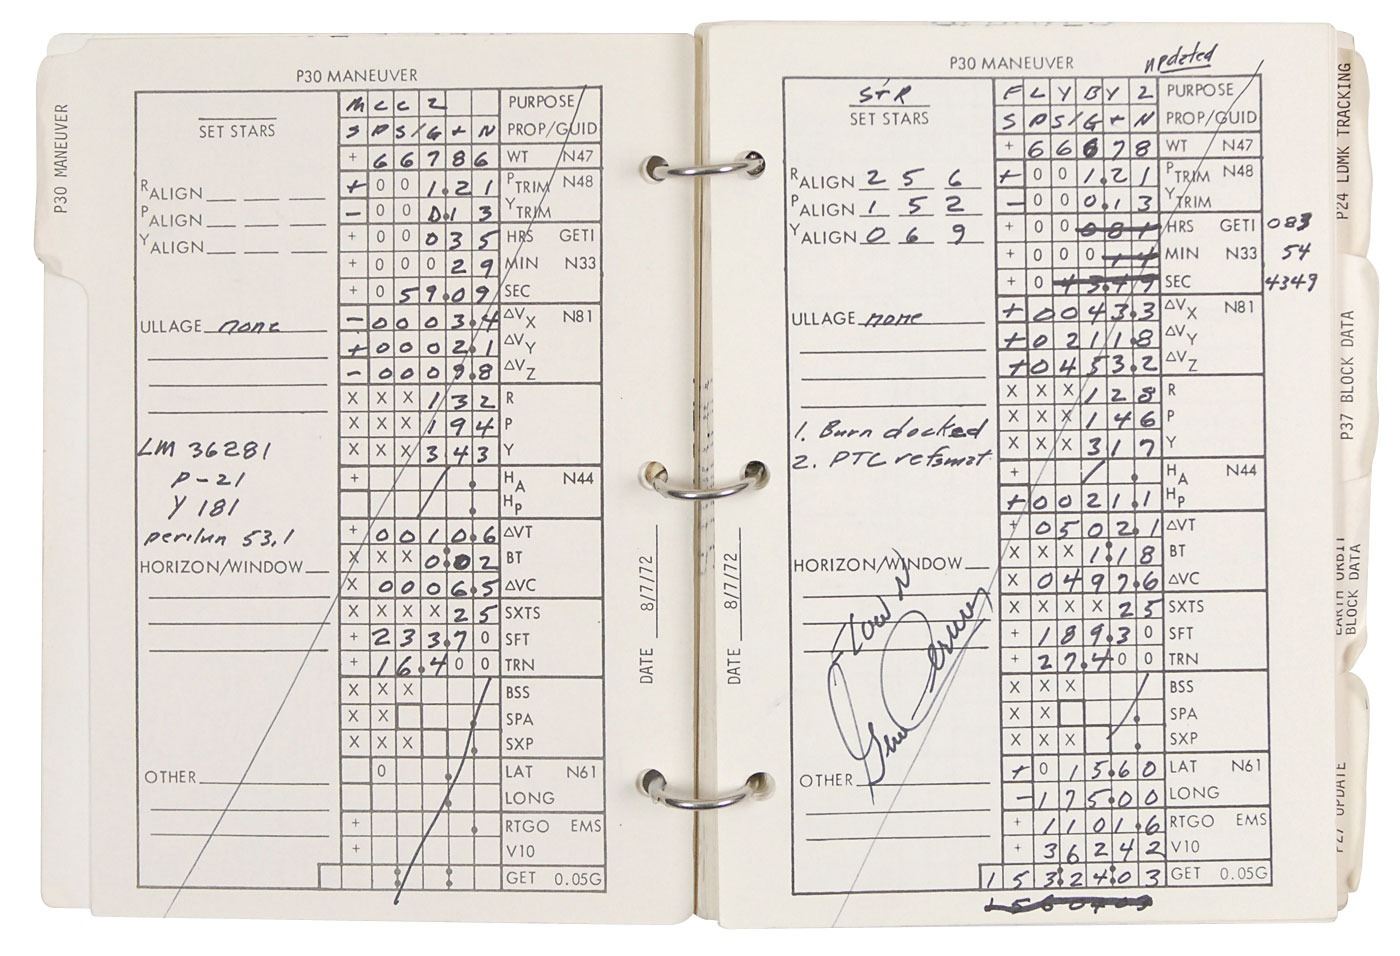 P30 MANEUVER
P30 MANEUVER
M C C 2 PURPOSE
SET STARS
S P S / G + N PROP/GUID
+ 6 6 7 8 6 WT N47
RALIGN
+ 0 0 1.2 1 PTRIM N48
PALIGN
- 0 0 0.1 3 YTRIM
YALIGN
+ 0 0 0 3 5 HRS GETI
+ 0 0 0 2 9 MIN N33
+ 0 5 9.0 9 SEC
ULLAGE none
- 0 0 0 3.4 ΔVX N81
+ 0 0 0 2.1 ΔVY
- 0 0 0 9.8 ΔVZ
X X X 1 3 2 R
X X X 1 9 4 P
X X X 3 4 3 Y
LM 36281
P-21
Y 181
perilun 53.1
+ HA N44
HP
+ 0 0 1 0.6 ΔVT
HORIZON/WINDOW
X X X 0:0 2 BT
X 0 0 0 6.5 ΔVC
X X X X 2 5 SXTS
+ 2 3 3.7 0 SFT
+ 1 6.4 0 0 TRN
X X X BSS
X X SPA
X X X SXP
OTHER
0 LAT N61
LONG
+ RTGO EMS
+ V10
GET 0.05G
DATE 8/7/72
P30 MANEUVER
updated
STR
SET STARS
F L Y B Y 2 PURPOSE
S P S / G + N PROP/GUID
+ 6 6 6 7 8 WT N47
RALIGN 2 5 6
+ 0 0 1.2 1 PTRIM N48
PALIGN 1 5 2
- 0 0 0.1 3 YTRIM
YALIGN 0 6 9
+ 0 0 0 8 1 HRS GETI 083
+ 0 0 0 1 4 MIN N33 54
+ 0 4 3.4 9 SEC 4349
ULLAGE none
+ 0 0 4 3.3 ΔVX N81
+ 0 2 1 1.8 ΔVY
+ 0 4 5 3.2 ΔVZ
X X X 1 2 8 R
X X X 1 4 6 P
X X X 3 1 7 Y
1. Burn docked
2. PTC refsmat
+ HA N44
+ 0 0 2 1.1 HP
+ 0 5 0 2.1 ΔVT
HORIZON/WINDOW
X X X 1:1 8 BT
X 0 4 9 7.6 ΔVC
X X X X 2 5 SXTS
+ 1 8 9.3 0 SFT
+ 2 7.4 0 0 TRN
X X X BSS
X X SPA
X X X SXP
Flown
Gene Cernan
OTHER
+ 0 1 5.6 0 LAT N61
- 1 7 5.0 0 LONG
+ 1 1 0 1.6 RTGO EMS
+ 3 6 2 4 2 V10
1 5 3:2 4:0 3 GET 0.05G
DATE 8/7/72
P24 LDMK TRACKING
P37 BLOCK DATA
EARTH ORBIT
BLOCK DATA
P27 UPDATE